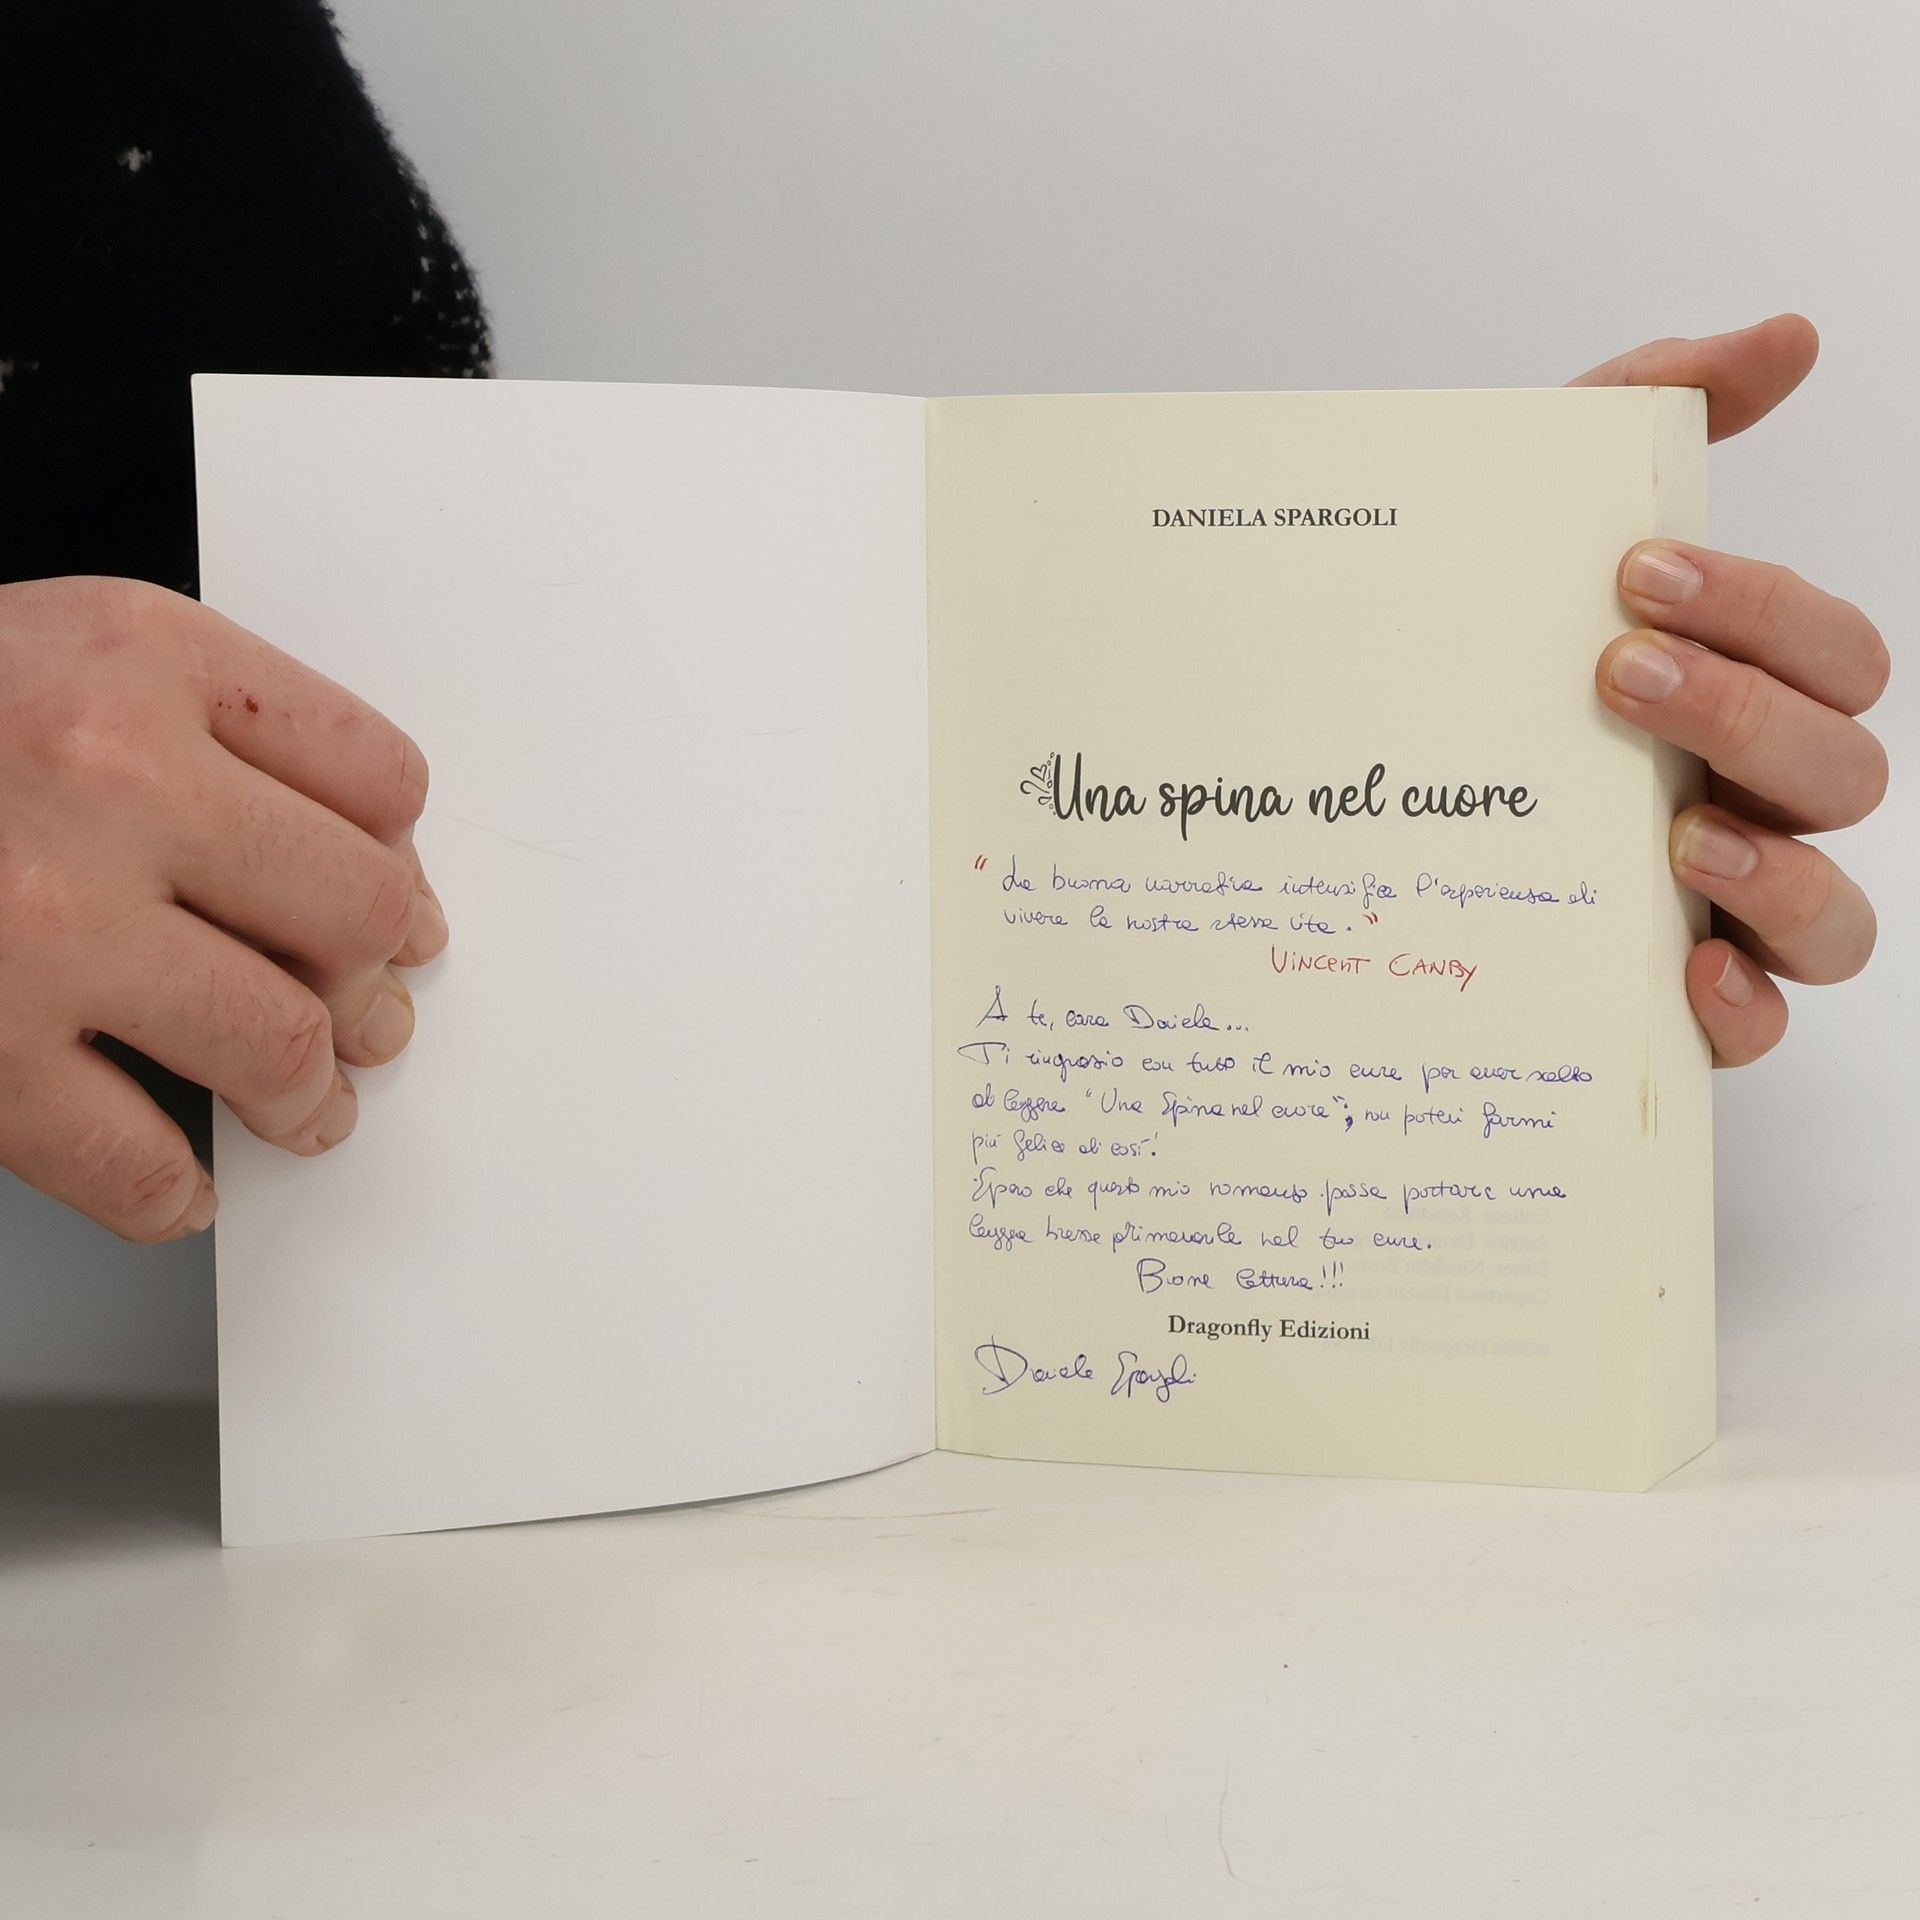 DANIELA SPARGOLI
Una spina nel cuore
" La buona narrativa intensifica l'esperienza di
vivere la nostra stessa vita. "
VINCENT CANBY
A te, cara Daniela...
Ti ringrazio con tutto il mio cuore per aver scelto
di leggere "Una Spina nel cuore"; non potevi farmi
più felice di così!
Spero che questo mio romanzo possa portare una
leggera brezza primaverile nel tuo cuore.
Buona lettura!!!
Dragonfly Edizioni
Daniela Spargoli